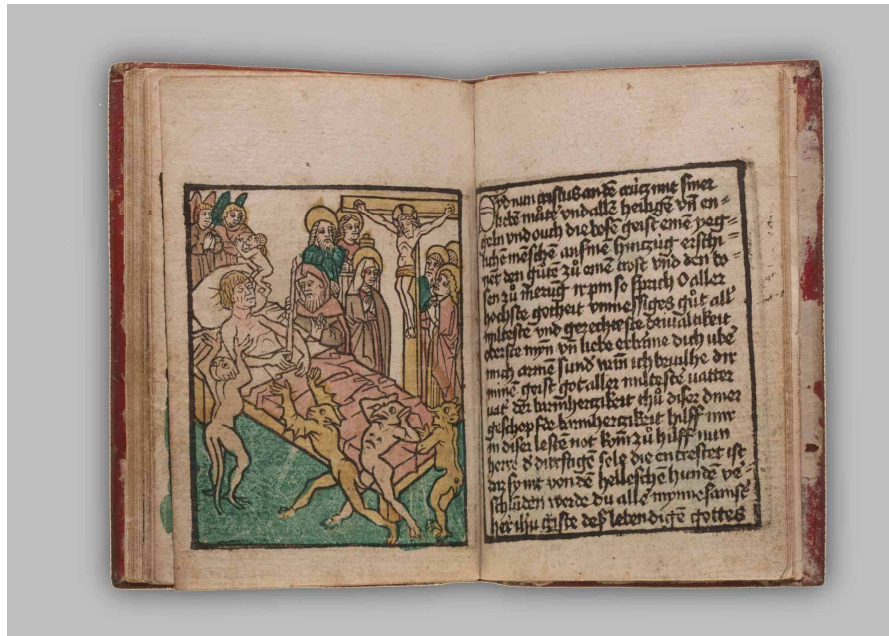 Syd nun cristus an dē crütz mit siner
liebē mūter vnd allē heiligē vñ en=
geln vnd ouch die böse geist einē yeg=
liche mēschē an sine hinzug erschi=
nēt den gūtē zū eine trost vnd den bö=
sen zū
so sprich O aller
höchste gotheit vnmessiges gūt aller
milteste vnd gerechtste driualtikeit
oberste myn vñ liebe erbarme dich vber
mich armē sund wañ ich beuilhe dir
minē geist got aller miltestē vatter
uat der barmhertzikeit thů diser diner
geschopfde barmhertzikeit hilff mir
in diser leste not kom zů hilff nun
herre d dürfftigē sele die entrestet ist
dz sy nit von dē helleschē hundē ve=
schlundē werde du alle mynnesamste
her ihū criste deß lebendigē gottes